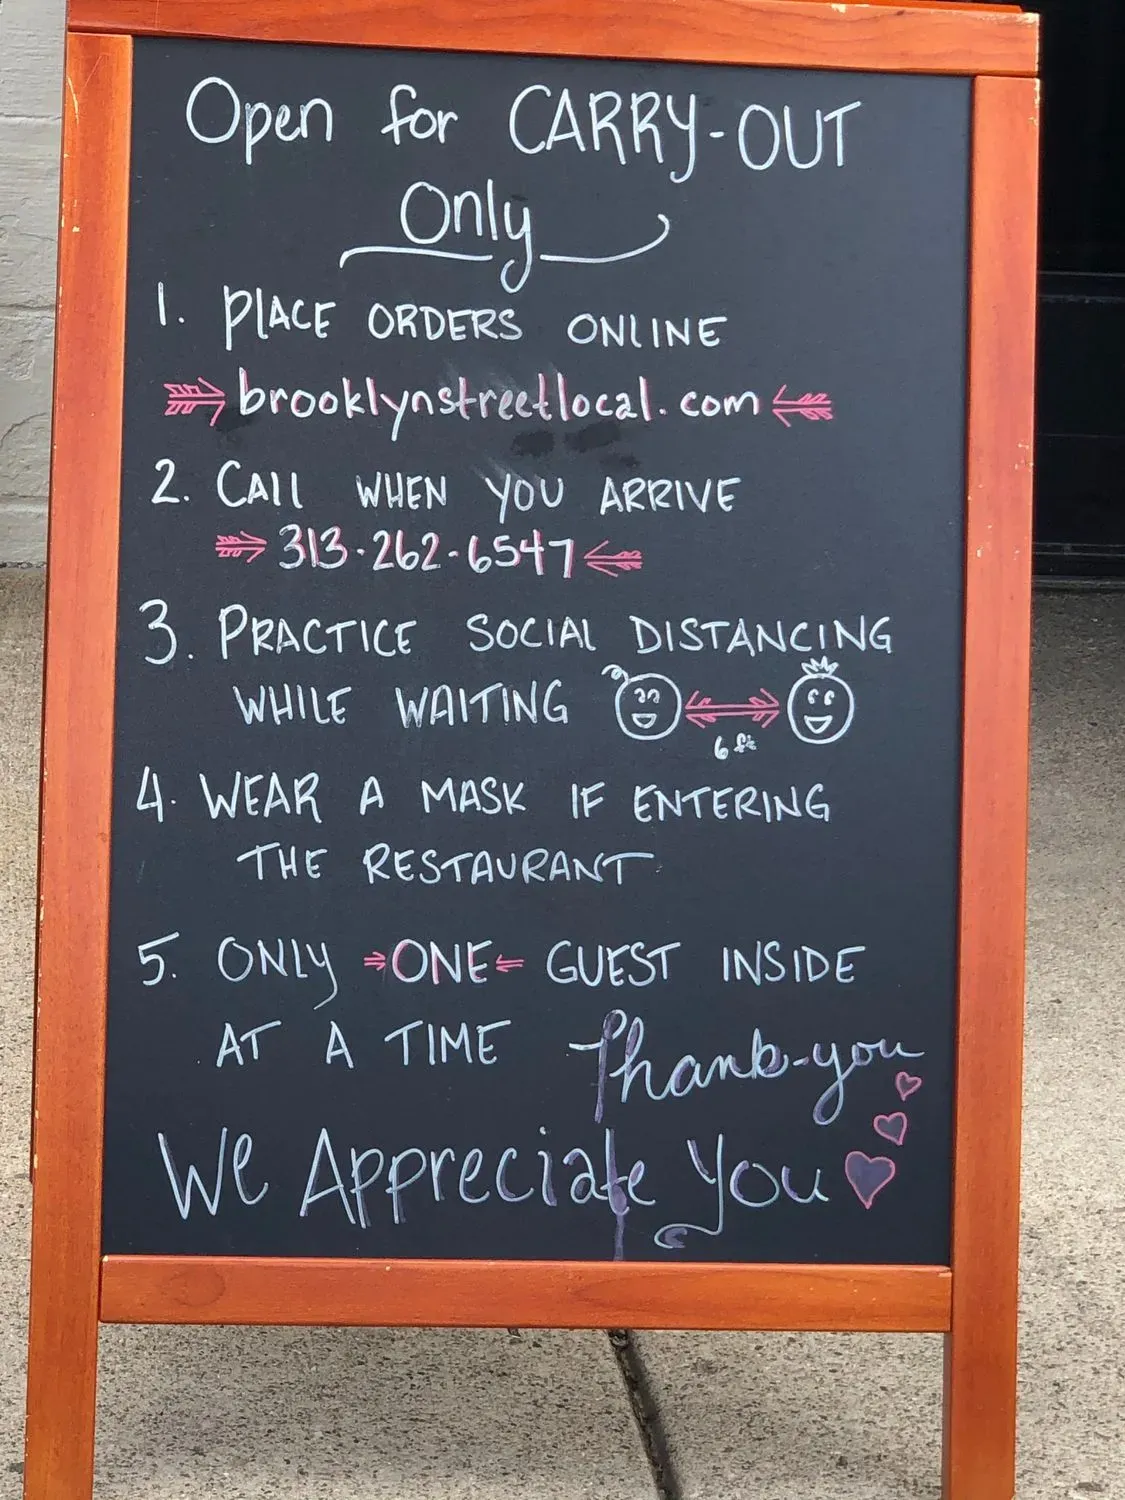 Open for CARRY-OUT
Only
1. PLACE ORDERS ONLINE
brooklynstreetlocal.com
2. CALL WHEN YOU ARRIVE
313-262-6547
3. PRACTICE SOCIAL DISTANCING
WHILE WAITING
6 ft
4. WEAR A MASK IF ENTERING
THE RESTAURANT
5. ONLY ONE GUEST INSIDE
AT A TIME
Thank-you
We Appreciate You